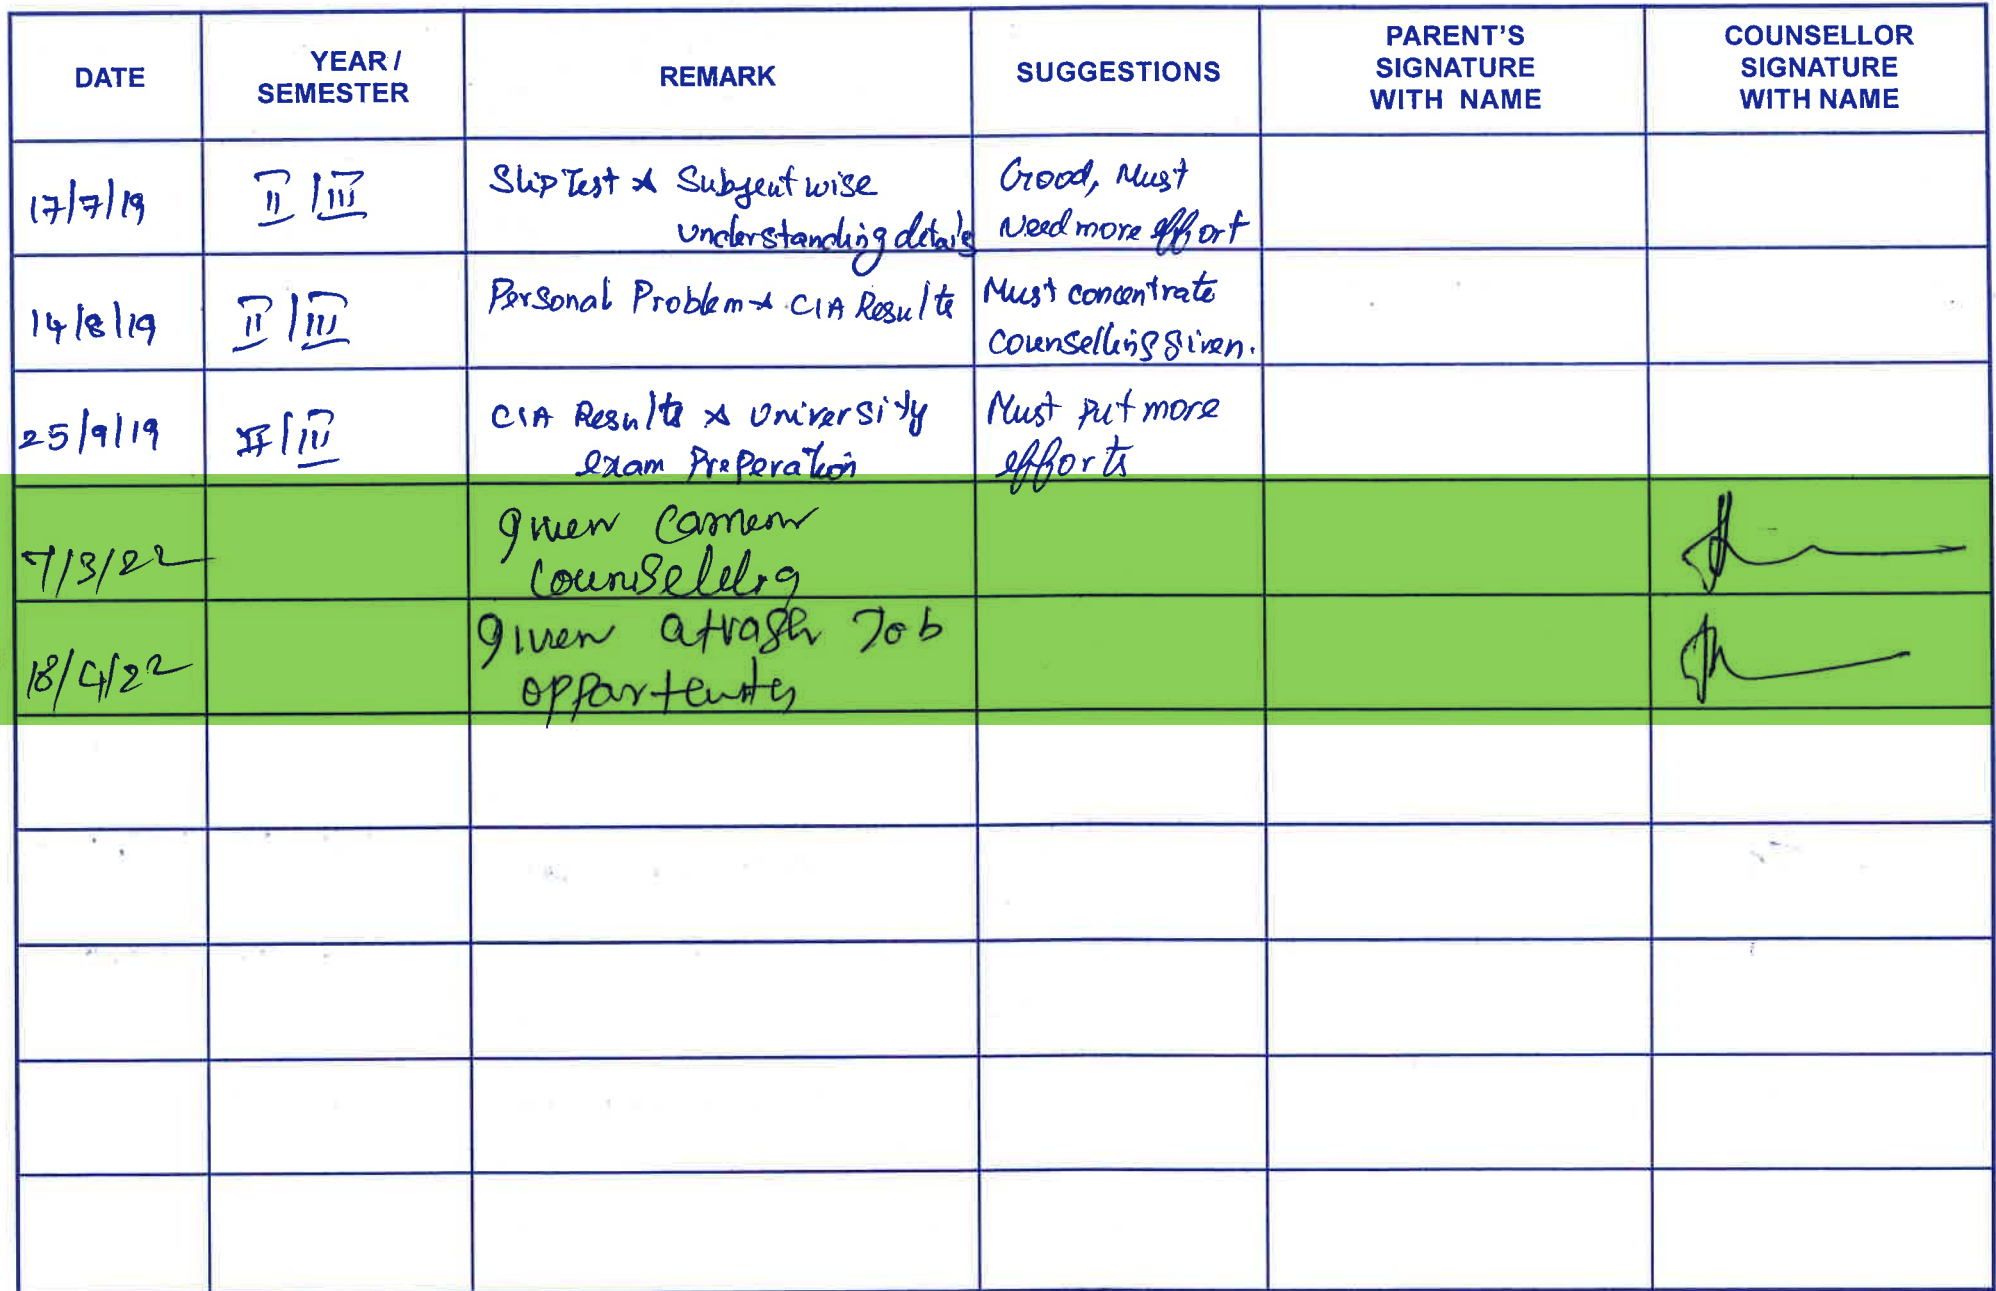 DATE
YEAR /
SEMESTER
REMARK
SUGGESTIONS
PARENT'S
SIGNATURE
WITH NAME
COUNSELLOR
SIGNATURE
WITH NAME
17/7/19
II / III
Slip Test & Subject wise
understanding details
Good, Must
Need more effort
14/8/19
II / III
Personal Problem & CIA Results
Must concentrate
counselling given.
25/9/19
II / III
CIA Results & University
exam Preperation
Must put more
efforts
7/3/22
given
counselling
18/4/22
given Job